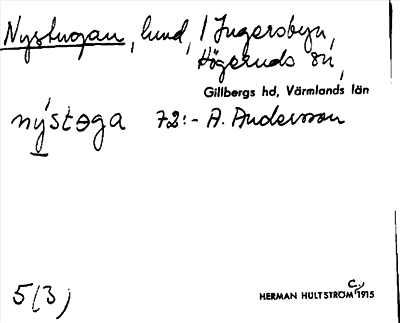 Nystugan, lund, / Ingersbyn,
Högeruds sn,
Gillbergs hd, Värmlands län
nýstɘga 72:- A. Andersson
5(3)
HERMAN HULTSTRÖM C:a 1915